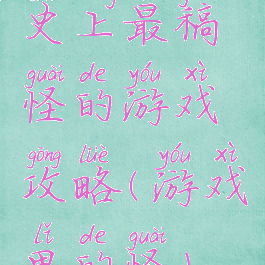 史上最稿
guài de yóu xì
怪的游戏
gōng lüè yóu xì
攻略(游戏
lǐ de guài
里的怪)